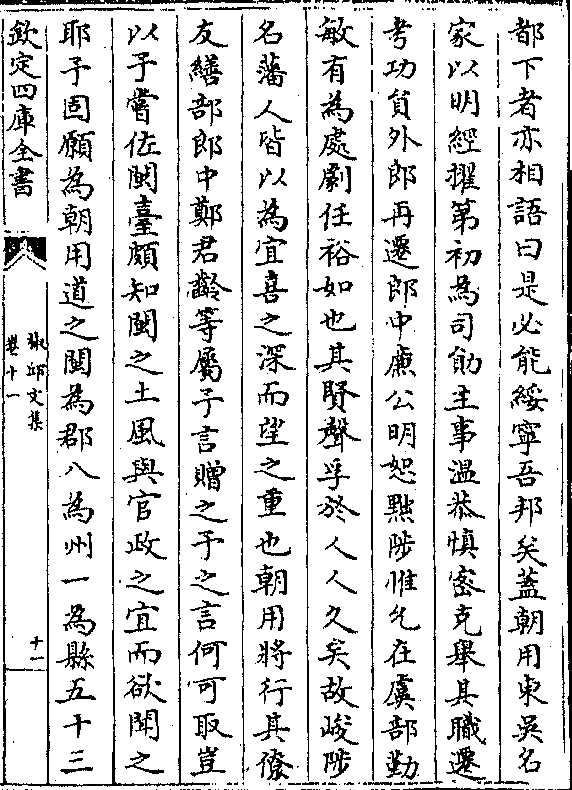 都下者亦相語曰是必能綏寧吾邦矣蓋朝用東吳名
家以明經擢第初為司勛主事溫恭慎密克舉其職遷
考功員外郎再遷郎中廉公明恕黜陟惟允在虞部勤
敏有為處劇任裕如也其賢聲孚於人人久矣故峻陟
名藩人皆以為宜喜之深而望之重也朝用將行其僚
友繕部郎中鄭君齡等屬予言贈之予之言何可取豈
以予嘗佐閩臺頗知閩之土風與官政之宜而欲聞之
耶予固願為朝用道之閩為郡八為州一為縣五十三
欽定四庫全書
文集
卷十一
十一